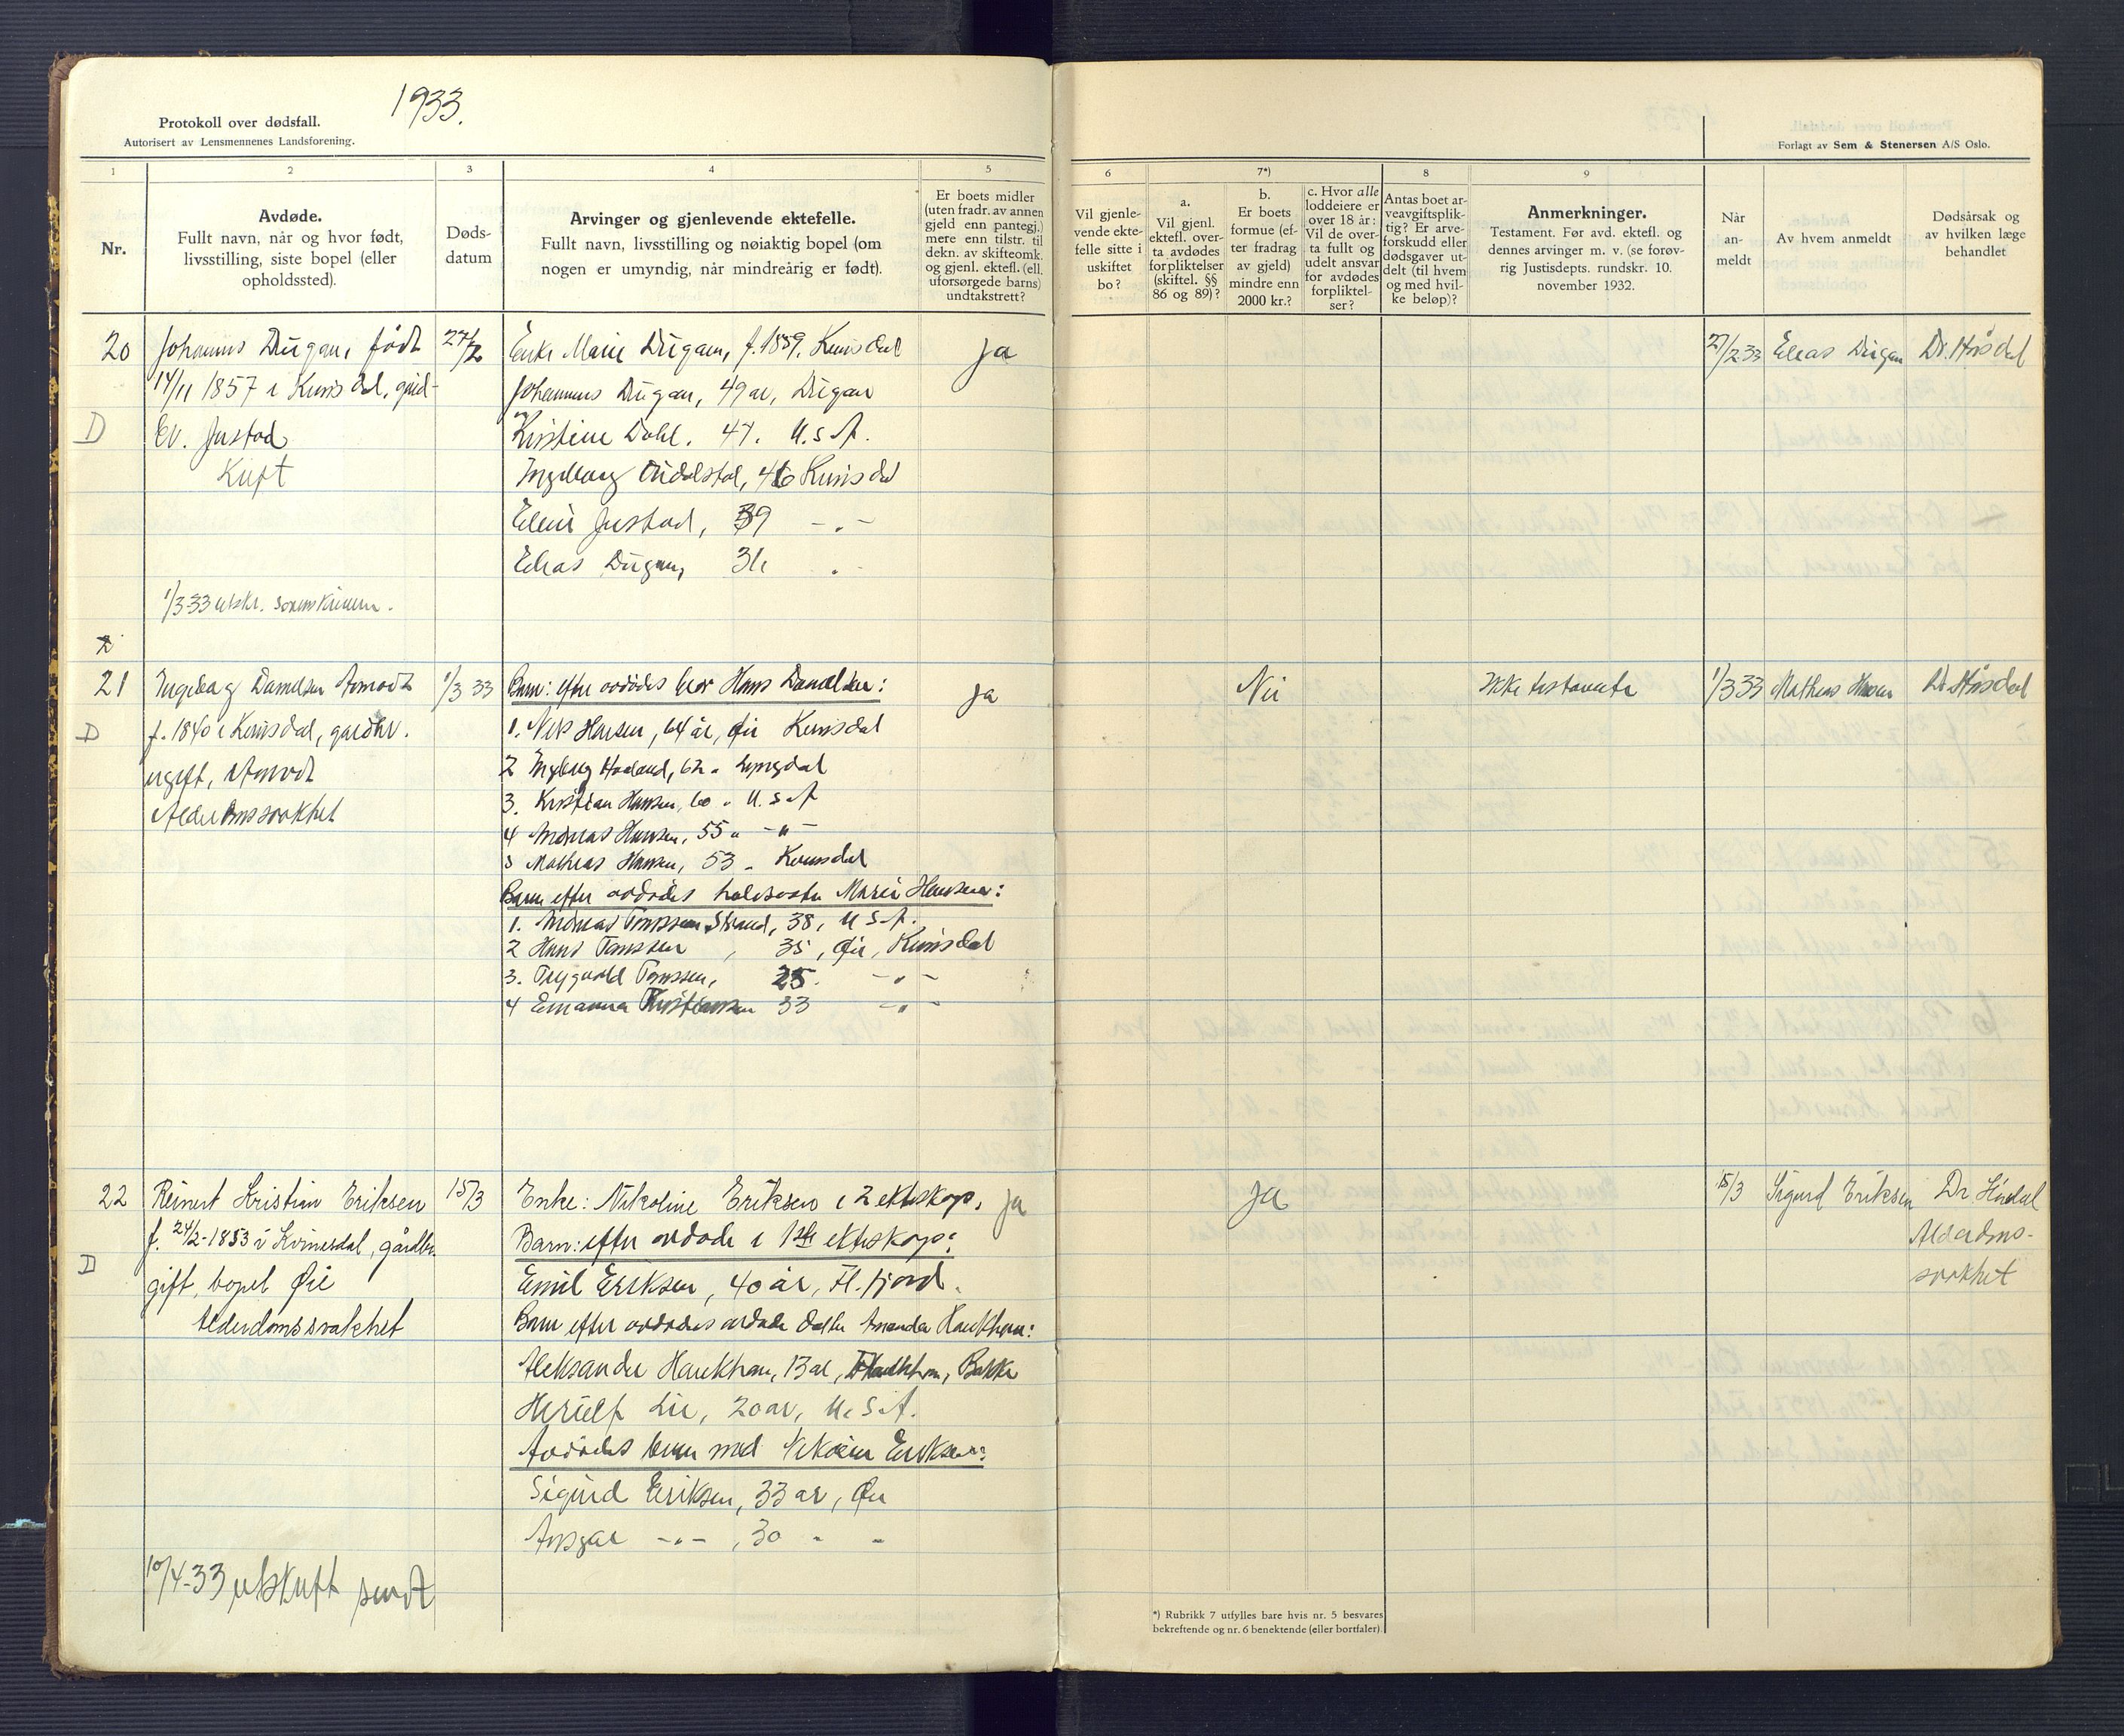 1933.
Protokoll over dødsfall.
Autorisert av Lensmennenes Landsforening.
Forlagt av Sem & Stenersen A/S Oslo.
1 2 3 4 5 6 7*) 8 9
Nr.
Avdøde.
Fullt navn, når og hvor født,
livsstilling, siste bopel (eller
opholdssted).
Døds-
datum
Arvinger og gjenlevende ektefelle.
Fullt navn, livsstilling og nøiaktig bopel (om
nogen er umyndig, når mindreårig er født).
Er boets midler
(uten fradr. av annen
gjeld enn pantegj.)
mere enn tilstr. til
dekn. av skifteomk.
og gjenl. ektefl. (ell.
uforsørgede barns)
undtakstrett?
Vil gjenle-
vende ekte-
felle sitte i
uskiftet
bo?
a.
Vil gjenl.
ektefl. over-
ta avdødes
forpliktelser
(skiftel. §§
86 og 89)?
b.
Er boets
formue (ef-
ter fradrag
av gjeld)
mindre enn
2000 kr.?
c. Hvor alle
loddeiere er
over 18 år:
Vil de over-
ta fullt og
udelt ansvar
for avdødes
forpliktel-
ser?
Antas boet ar-
veavgiftsplik-
tig? Er arve-
forskudd eller
dødsgaver ut-
delt (til hvem
og med hvil-
ke beløp)?
Anmerkninger.
Testament. Før avd. ektefl. og
dennes arvinger m. v. (se forøv-
rig Justisdepts. rundskr. 10.
november 1932.
Når
an-
meldt
Av hvem anmeldt
Dødsårsak og
av hvilken læge
behandlet
20
Johannes Dugan, født
14/11 1857 i Kvinsdal, gård-
Ev. Justad
D
27/2
Enke Marie Dugan, f. 1859, Kvinsdal
Johannes Dugan, 49 ar, Dugan
Kristine Dahl. 47. U.S.A.
Ingeborg 46 Kvinsdal
Justad, 39 -"-
Elias Dugan, 36 "
ja
27/2.33 Elias Dugan Dr. Hörsdal
1/3-33 utskr. sorenskriveren.
21
Ingeborg Danielsen Åmodt
f. 1840 i Kvinsdal, gardbr.
ugift, Åmodt
Alderdomssvakhet
D
1/3 33
Barn: efter avdødes bror Hans Danielsen:
1. Nils Hansen, 64 år, Øie Kvinsdal
2 Ingeborg Haaland, 62 " Lyngdal
3. Kristian Hansen, 60 " U.S.A
4 Andreas Hansen, 55 " -"-
5 Mathias Hansen, 53 " Kvinsdal
Barn efter avdødes halvsøster Marie Hansen:
1. Andreas Tønnessen Strand, 38, U S A.
2 Hans Tønnessen, 35, Øie, Kvinsdal
3. Trygvald Tønnessen, 25. -"-
4 Emanna Kristiansen 33 -"-
ja
Nei
Ikke testamente
1/3 33 Mathias Hansen Dr. Hörsdal
22
Reinert Kristian Eriksen
f. 24/2-1853 i Kvinesdal, gårdbr.
gift, bopel Øie
Alderdomssvakhet
D
15/3
Enke: Nikoline Eriksen i 2 ekteskap.
Barn: efter avdøde i 1ste ekteskap:
Emil Eriksen, 40 år, Fl. fjord.
Barn efter avdødes avdøde datter Amanda Haukhom:
Aleksander Haukhom, 13 ar, Haukhom, Bakke
Herulf Lie, 20 ar, U.S.A.
Avdødes barn med Nikoline Eriksen:
Sigurd Eriksen, 33 ar, Øie
Ansgar -"-, 30 " "
ja
ja
15/3 Sigurd Eriksen Dr Hördal
Alderdoms-
svakhet
10/4-33 utskrift sendt
*) Rubrikk 7 utfylles bare hvis nr. 5 besvares
bekreftende og nr. 6 benektende (eller bortfaller).